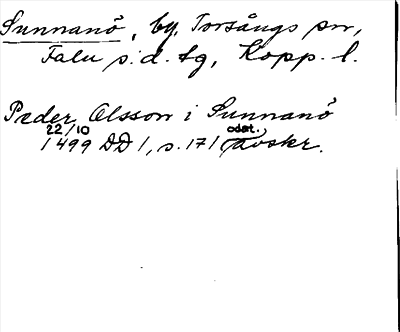 Sunnanö, by, Torsångs sn,
Falu s:a d. tg, Kopp. l.
Peder Olsson i Sunnanö
22/10 odat.
1499 DD 1, s. 171 (avskr.